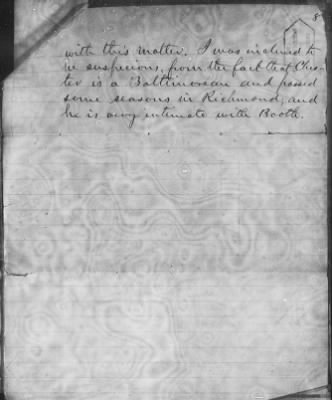 8
with this matter. I was inclined to
be suspicious, from the fact that Ches-
ter is a Baltimorean and passed
some seasons in Richmond, and
he is very intimate with Booth.